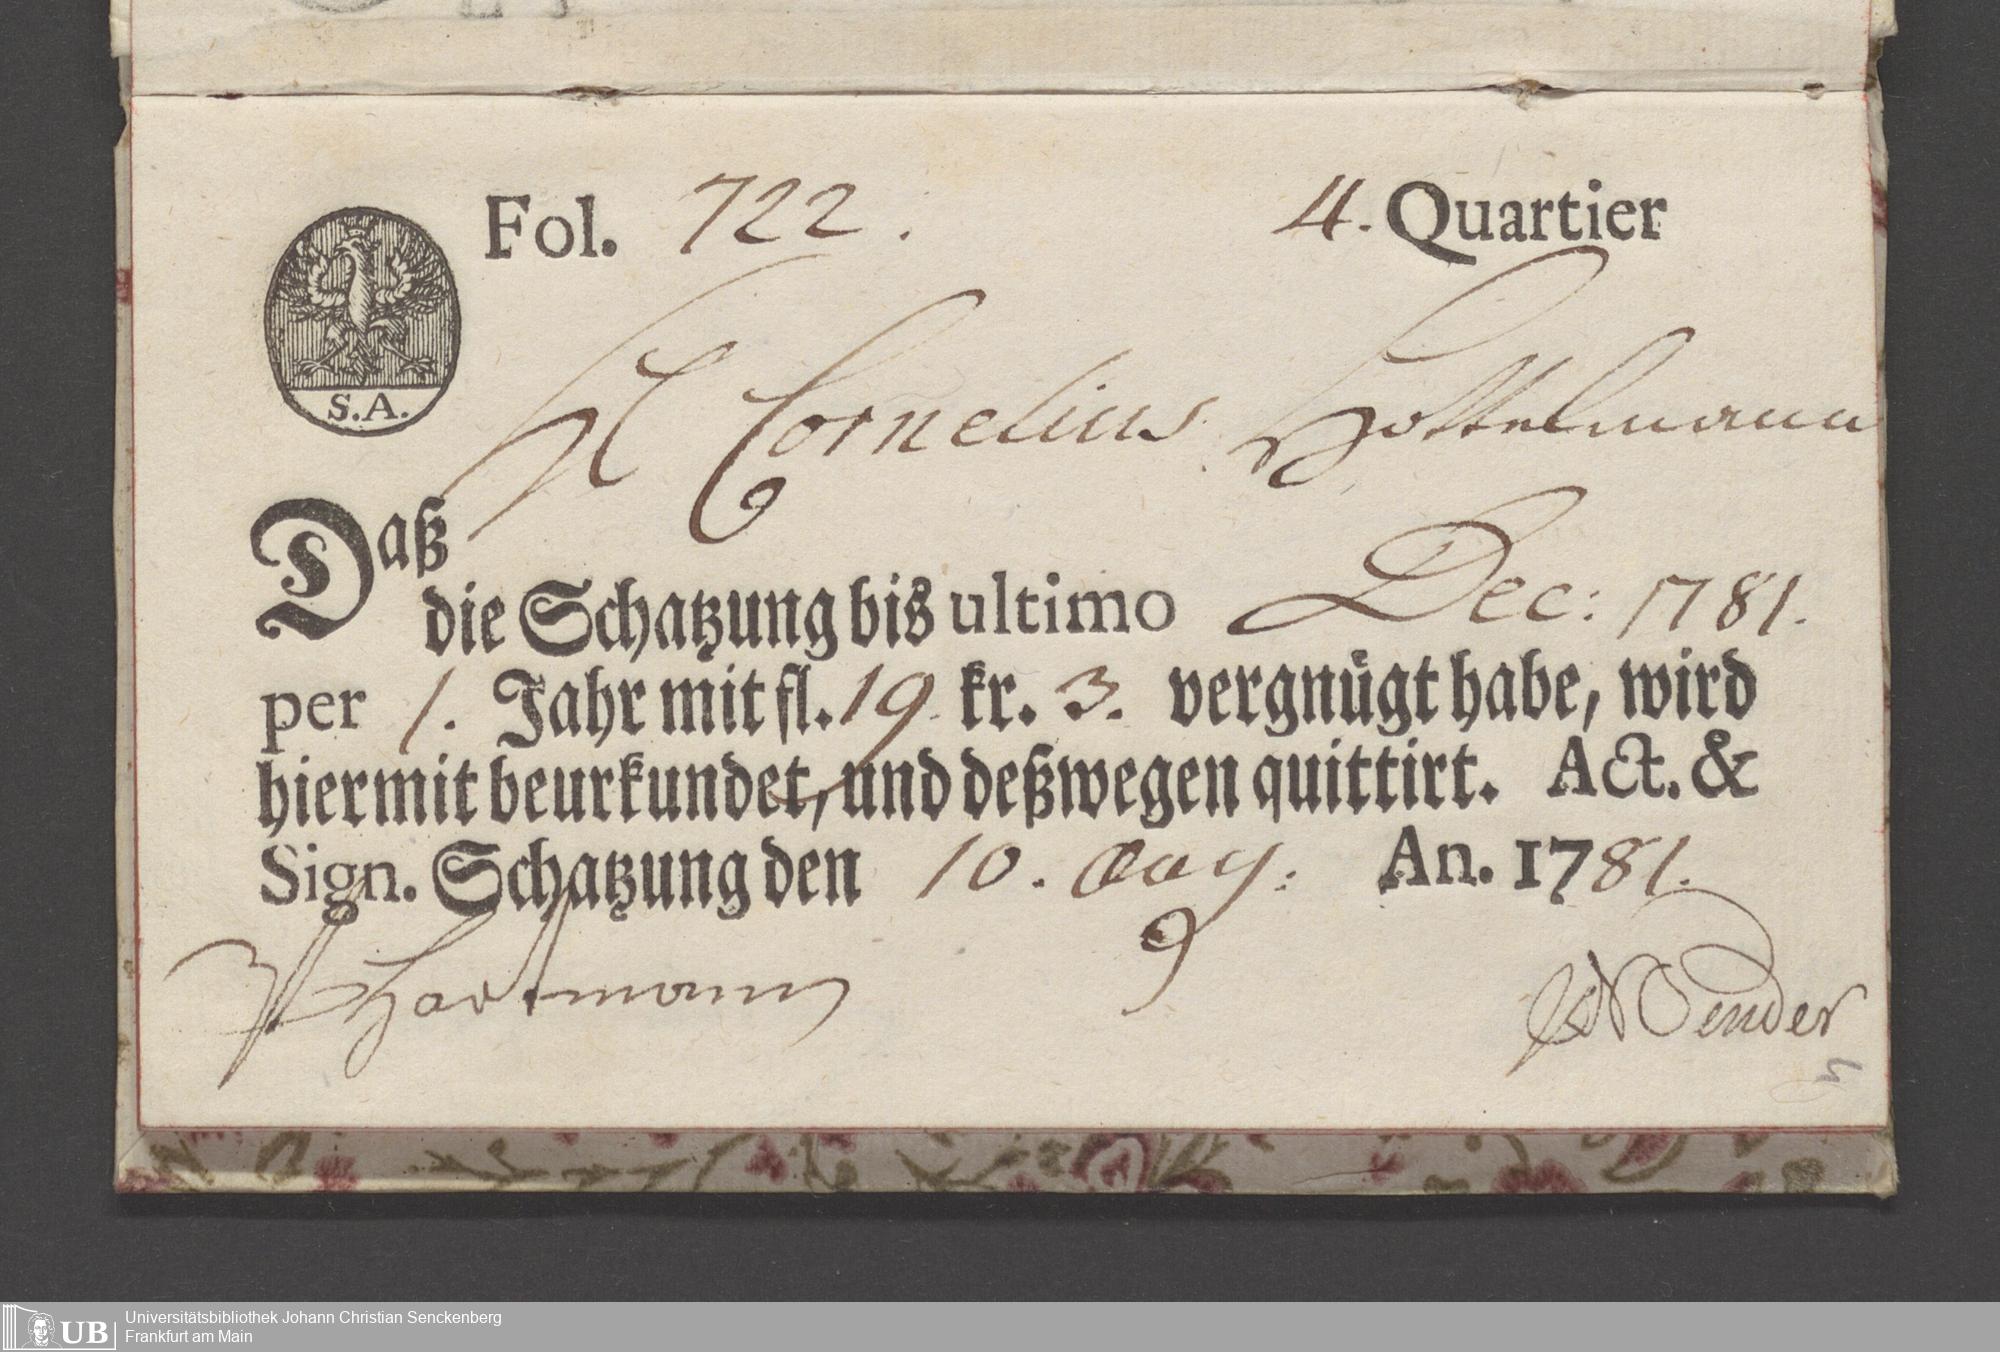 Fol. 722. 4. Quartier
S.A.
H Cornelius Hottelmann
Daß
die Schatzung bis ultimo Dec: 1781.
per 1. Jahr mit fl. 19 kr. 3. vergnügt habe, wird
hiermit beurkundet, und deßwegen quittirt. Act. &
Sign. Schatzung den 10. An. 1781.
Hartmann
Bender
UB Universitätsbibliothek Johann Christian Senckenberg
Frankfurt am Main